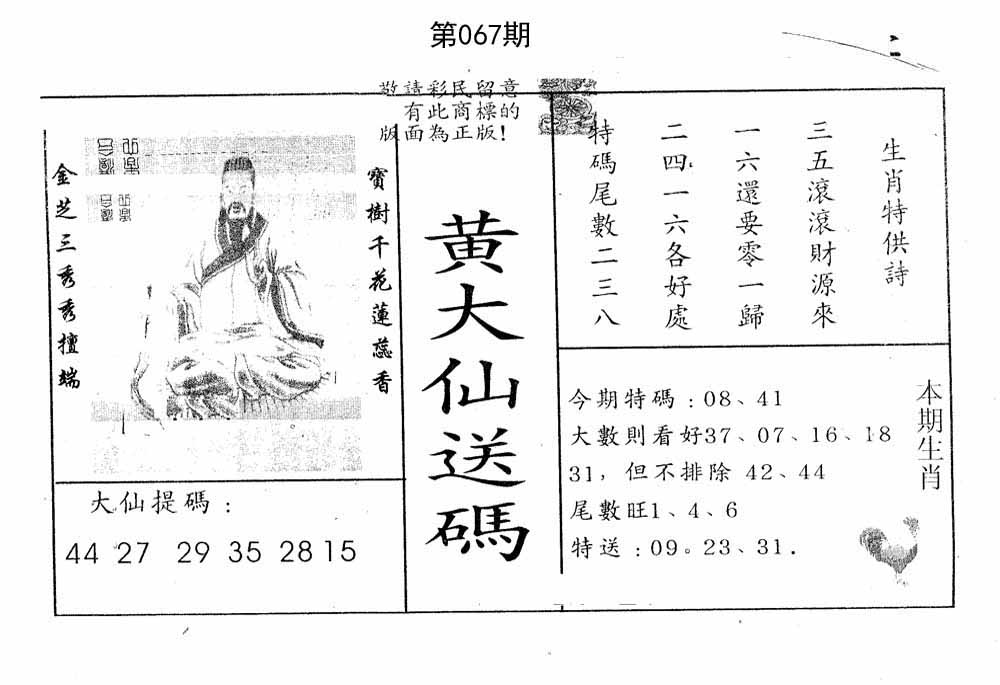 第067期
敬請彩民留意
有此商標的
版面為正版!
金芝三秀秀擅端
寶樹千花蓮蕊香
黄大仙送碼
大仙提碼：
44 27 29 35 28 15
生肖特供詩
三五滾滾財源來
一六還要零一歸
二四一六各好處
特碼尾數二三八
本期生肖
今期特碼:08、41
大數則看好37、07、16、18
31, 但不排除 42、44
尾數旺1、4、6
特送:09。23、31.